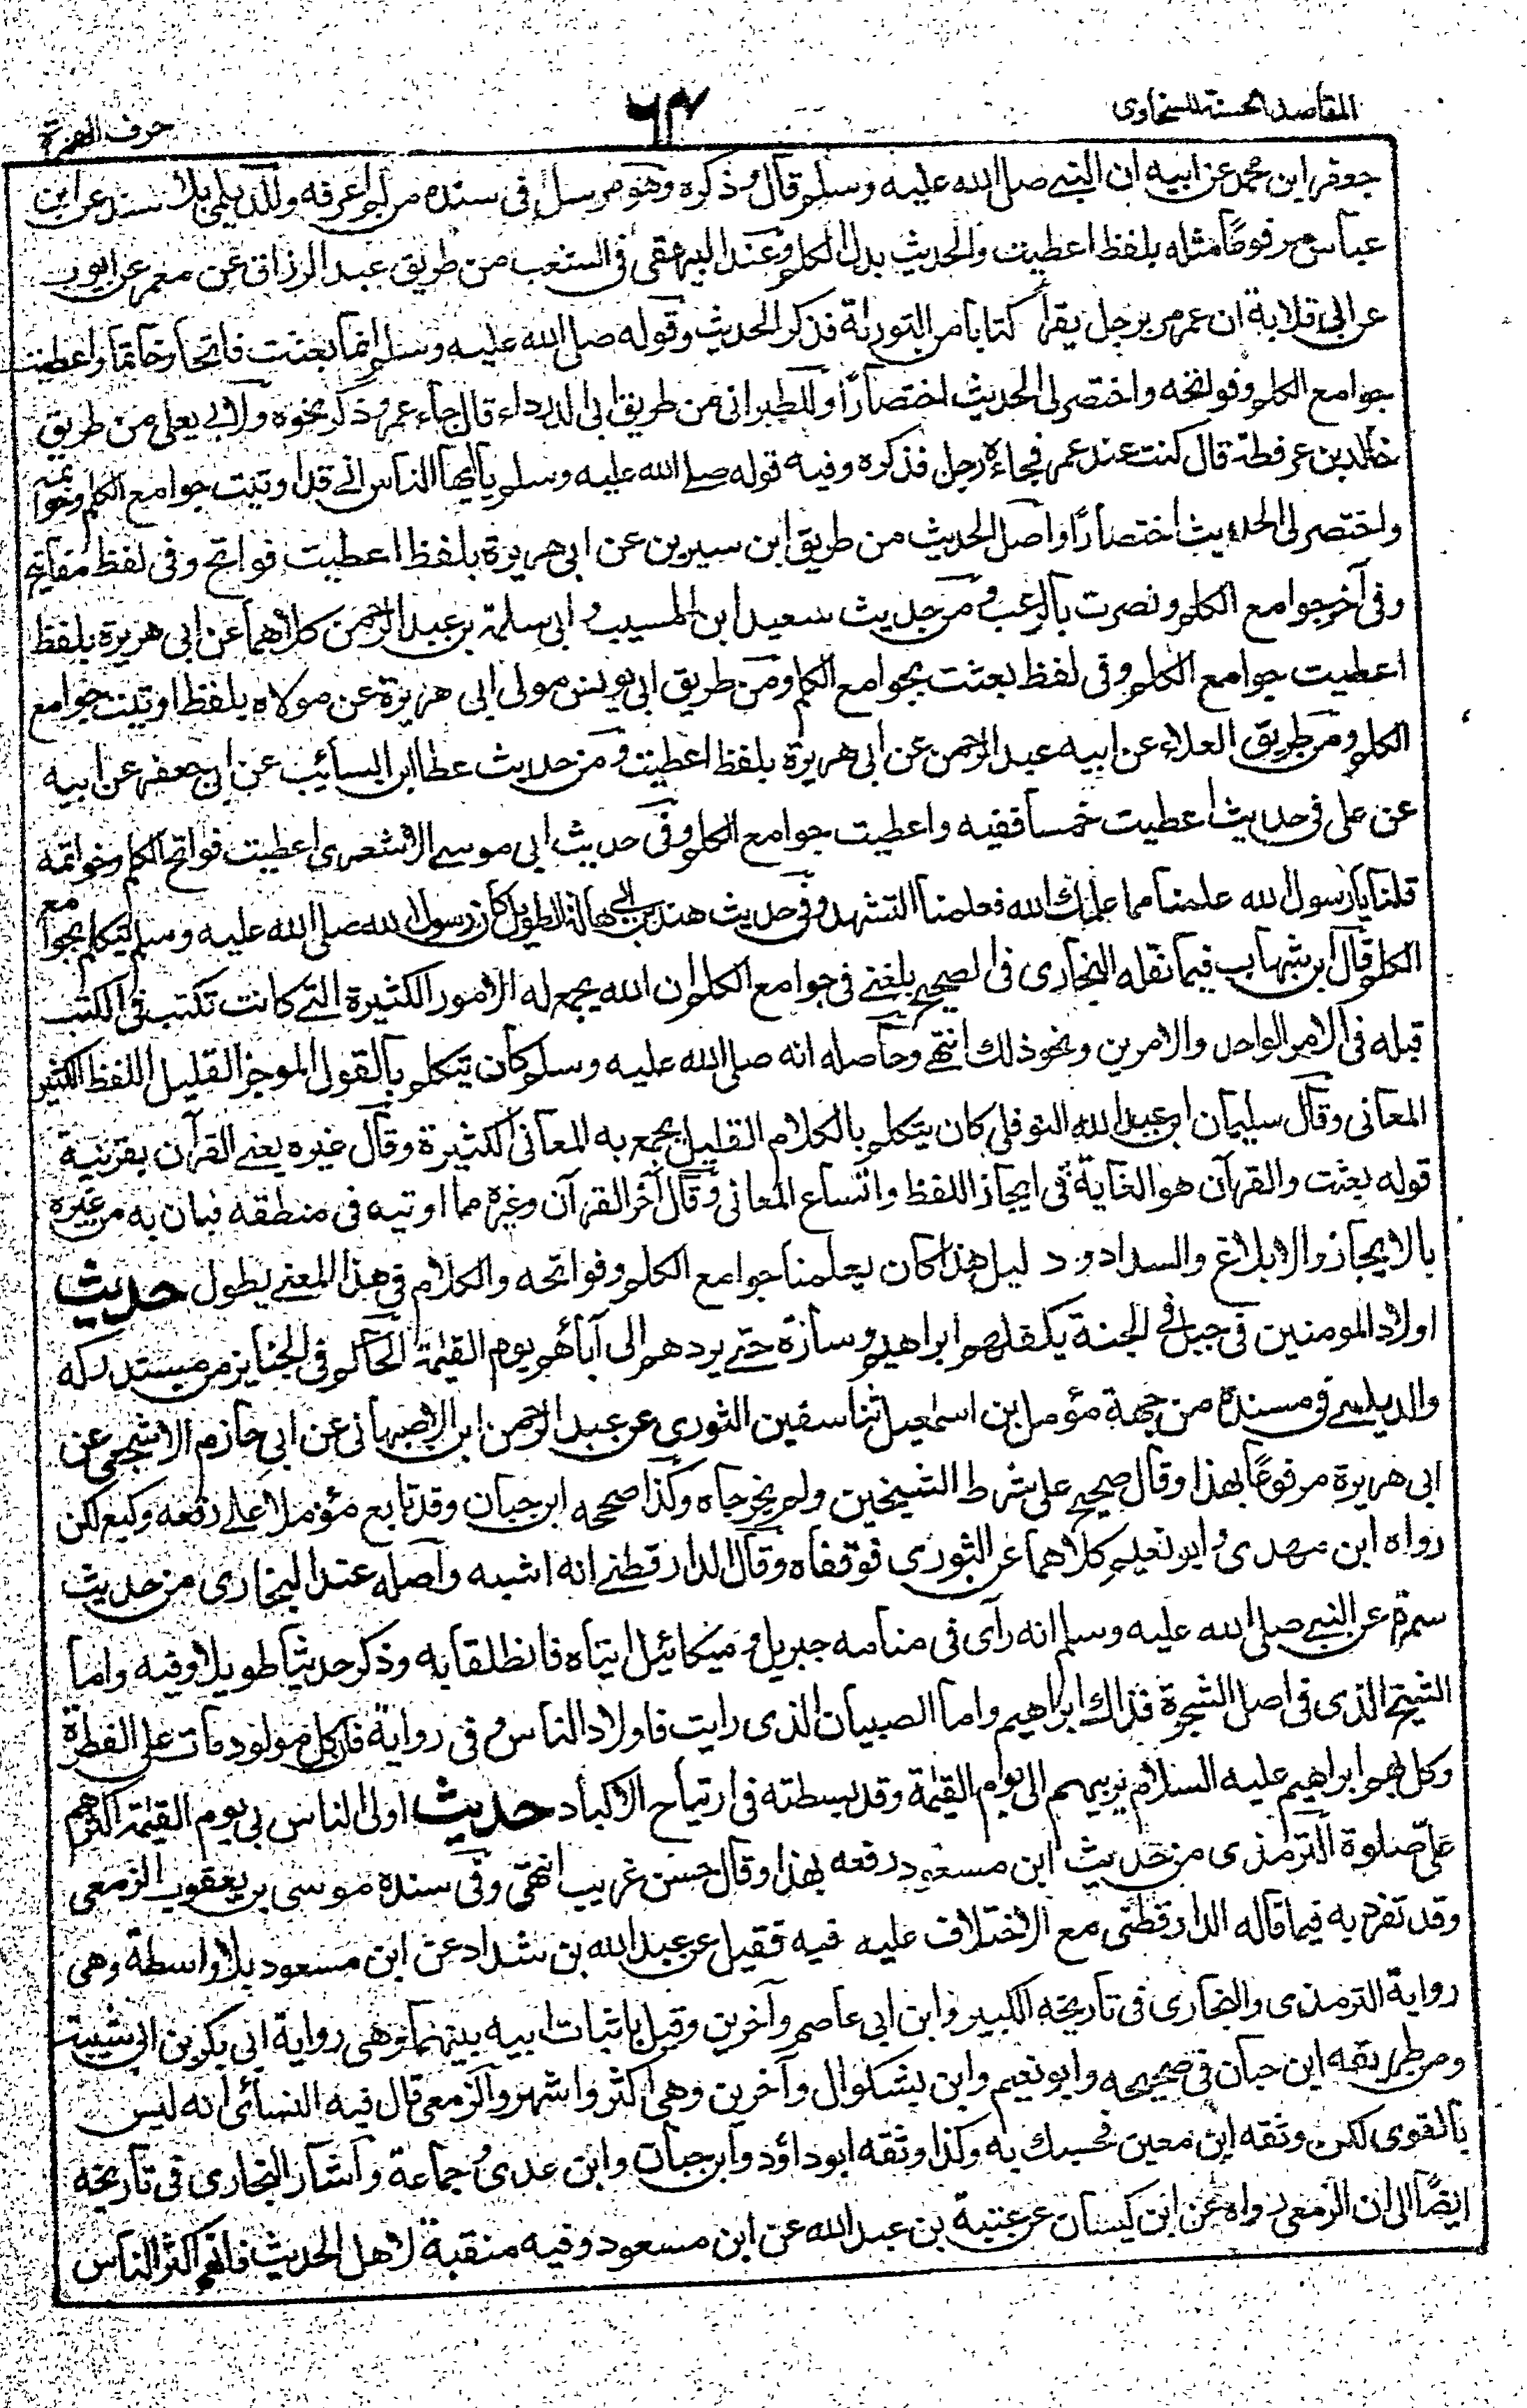 المقاصد الحسنة للسخاوى
٦٣
حرف الهمزة
جعفر ابن محمد عن ابيه ان النبى صلى الله عليه وسلم قال وذكره وهو مرسل فى سنده من لم اعرفه وللديلمى بلا سند عن ابن
عباس مرفوعًا مثله بلفظ اعطيت والحديث بدل الكلم وعند البيهقى فى الشعب من طريق عبد الرزاق عن معمر عن ايوب
عن ابى قلابة ان عمر مر برجل يقرأ كتابا من التوراة فذكر الحديث وقوله صلى الله عليه وسلم انما بعثت فاتحا وخاتما واعطيت
جوامع الكلم وفواتحه واختصر لى الحديث اختصارًا وللطبرانى من طريق ابى الدرداء قال جاء عمر وذكر نحوه ولابى يعلى من طريق
خالد بن عرفطة قال كنت عند عمر فجاءه رجل فذكره وفيه قوله صلى الله عليه وسلم يا ايها الناس انى قد اوتيت جوامع الكلم وخواتمه
واختصر لى الحديث اختصارًا واصل الحديث من طريق ابن سيرين عن ابى هريرة بلفظ اعطيت فواتح وفى لفظ مفاتيح
وفى آخر جوامع الكلم ونصرت بالرعب ومن حديث سعيد ابن المسيب وابى سلمة بن عبد الرحمن كلاهما عن ابى هريرة بلفظ
اعطيت جوامع الكلم وفى لفظ بعثت بجوامع الكلم ومن طريق ابى يونس مولى ابى هريرة عن مولاه بلفظ اوتيت جوامع
الكلم ومن طريق العلاء عن ابيه عبد الرحمن عن ابى هريرة بلفظ اعطيت ومن حديث عطا ابن السائب عن ابى جعفر عن ابيه
عن على فى حديث اعطيت خمسا ففيه واعطيت جوامع الكلم وفى حديث ابى موسى الاشعرى اعطيت فواتح الكلم وخواتمه
قلنا يا رسول الله علمنا مما علمك الله فعلمنا التشهد وفى حديث هند بن ابى هالة الطويل كان رسول الله صلى الله عليه وسلم يتكلم بجوامع
الكلم قال ابن شهاب فيما نقله البخارى فى الصحيح بلغنى فى جوامع الكلم ان الله يجمع له الامور الكثيرة التى كانت تكتب فى الكتب
قبله فى الامر الواحد والامرين ونحو ذلك انتهى وحاصله انه صلى الله عليه وسلم كان يتكلم بالقول الموجز القليل اللفظ الكثير
المعانى وقال سليمان ابن عبد الله النوفلى كان يتكلم بالكلام القليل يجمع به المعانى الكثيرة وقال غيره يعنى القرآن بقرينة
قوله بعثت والقرآن هو الغاية فى ايجاز اللفظ واتساع المعانى وقال آخر القرآن وغيره مما اوتيه فى منطقه فبان به من غيره
بالايجاز والابلاغ والسداد ودليل هذا كان يعلمنا جوامع الكلم وفواتحه والكلام فى هذا المعنى يطول حديث
اولاد المومنين فى جبل فى الجنة يكفلهم ابراهيم وسارة حتى يردهم الى آبائهم يوم القيمة الحاكم فى الجنايز من مستدركه
والديلمى فى مسنده من جهة مؤمل بن اسمعيل ثنا سفين الثورى عن عبد الرحمن ابن الاصبهانى عن ابى حازم الاشجعى عن
ابى هريرة مرفوعًا بهذا وقال صحيح على شرط الشيخين ولم يخرجاه وكذا صححه ابن حبان وقد تابع مؤملا على رفعه وكيع لكن
رواه ابن مهدى وابو نعيم كلاهما عن الثورى فوقفاه وقال الدارقطنى انه اشبه واصله عند البخارى من حديث
سمرة عن النبى صلى الله عليه وسلم انه رأى فى منامه جبريل وميكائيل اتياه فانطلقا به وذكر حديثا طويلا وفيه واما
الشيخ الذى فى اصل الشجرة فذاك ابراهيم واما الصبيان الذى رايت فاولاد الناس وفى رواية فكل مولود مات على الفطرة
وكل بهم ابراهيم عليه السلام يربيهم الى يوم القيمة وقد بسطته فى ارتياح الاكباد حديث اولى الناس بى يوم القيمة اكثرهم
علىّ صلوة الترمذى من حديث ابن مسعود رفعه بهذا وقال حسن غريب انتهى وفى سنده موسى بن يعقوب الزمعى
وقد تفرد به فيما قاله الدارقطنى مع الاختلاف عليه فيه فقيل عن عبد الله بن شداد عن ابن مسعود بلا واسطة وهى
رواية الترمذى والبخارى فى تاريخه الكبير وابن ابى عاصم وآخرين وقيل باثبات ابيه بينهما وهى رواية ابى بكر بن ابى شيبة
ومن طريقه ابن حبان فى صحيحه وابو نعيم وابن بشكوال وآخرين وهى اكثر واشهر والزمعى قال فيه النسائى انه ليس
بالقوى لكن وثقه ابن معين فحسبك به وكذا وثقه ابو داؤد وابن حبان وابن عدى وجماعة واشار البخارى فى تاريخه
ايضًا الى ان الزمعى رواه عن ابن كيسان عن عتبة بن عبد الله عن ابن مسعود وفيه منقبة لاهل الحديث فانهم اكثر الناس